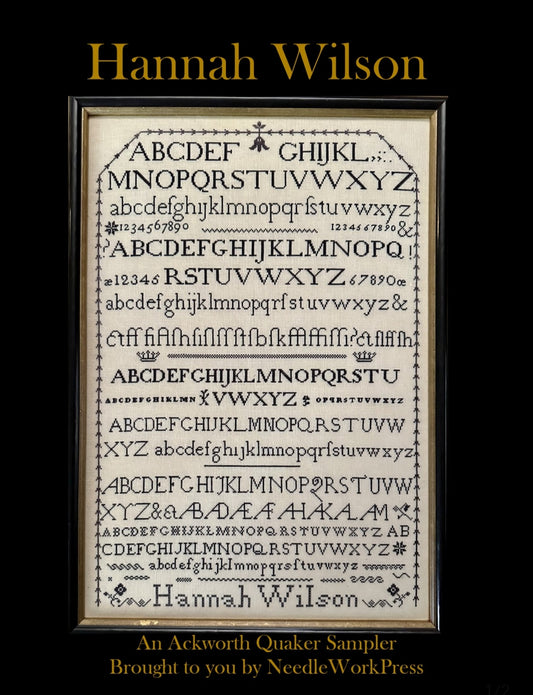 Hannah Wilson
ABCDEF GHIJKL,;:.
MNOPQRSTUVWXYZ
abcdefghijklmnopqrſstuvwxyz
1234567890 1234567890&
?ABCDEFGHIJKLMNOPQ!
æ12345RSTUVWXYZ67890œ
abcdefghijklmnopqrſstuvwxyz&
ABCDEFGHIJKLMNOPQRSTU
ABCDEFGHIJKLMN VWXYZ OPQRSTUVWXYZ
ABCDEFGHIJKLMNOPQRSTUVW
XYZ abcdefghijklmnopqrſstuvwxyz
ABCDEFGHIJKLMNOPQRSTUVW
XYZ&
ABCDEFGHIJKLMNOPQRSTUVWXYZ AB
CDEFGHIJKLMNOPQRSTUVWXYZ
abcdefghijklmnopqrsſtuvwxyz
Hannah Wilson
An Ackworth Quaker Sampler
Brought to you by NeedleWorkPress